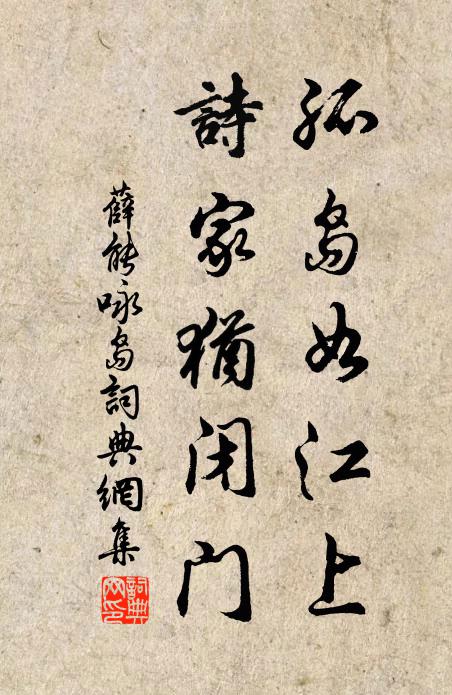 孤島如江上
詩家猶閉門
薛能咏島詞典網集
詞典网印